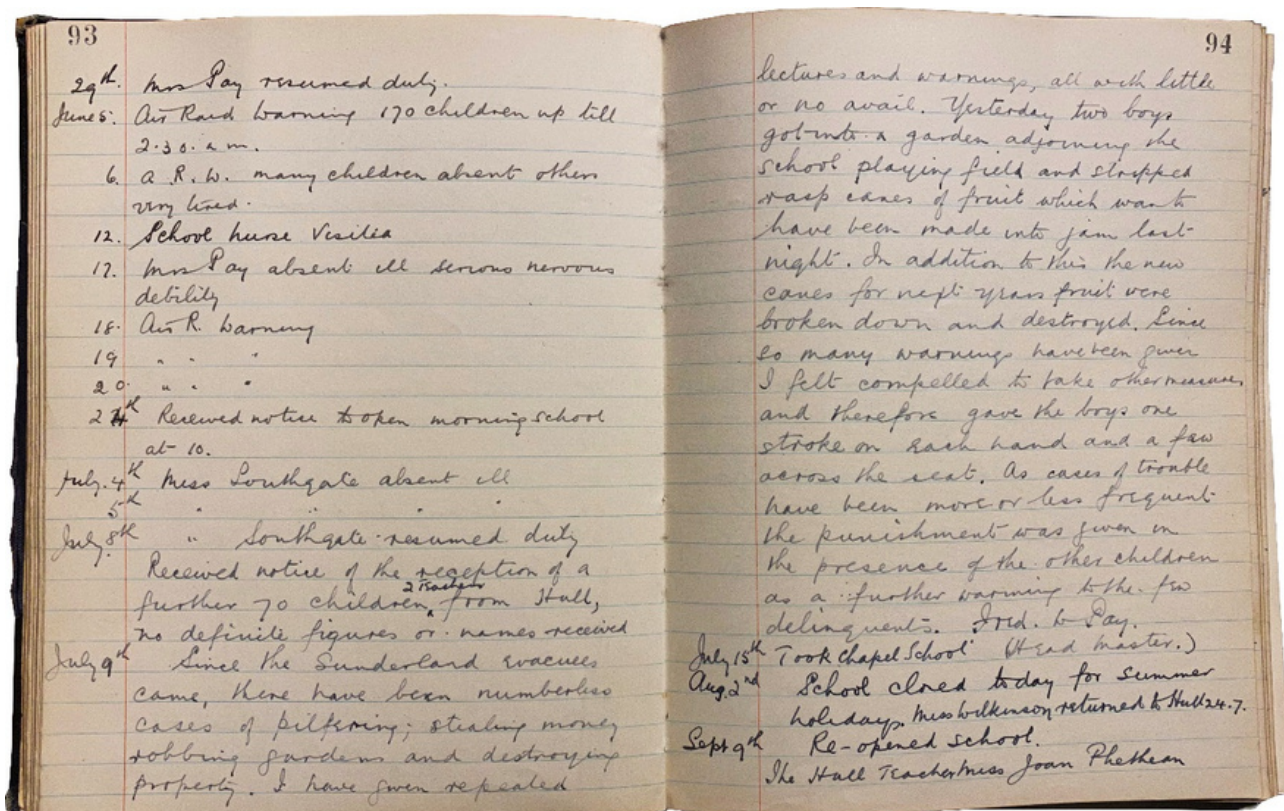 93
29th. Mrs Pay resumed duty.
June 5. Air Raid Warning 170 children up till
2.30. a.m.
6. A. R. W. many children absent others
very tired.
12. School nurse
17. Mrs Pay absent ill serious nervous
debility
18. Air R. Warning
19 " " "
20. " " "
24th Received notice to open morning school
at 10.
July. 4th Miss Southgate absent ill
5th " " "
July. 8th " Southgate resumed duty
Received notice of the reception of a
2 Teachers
further 70 children, from Hull,
no definite figures or names received
July 9th Since the Sunderland evacuees
came, there have been numberless
cases of pilfering; stealing money
robbing gardens and destroying
property. I have given repeated
94
lectures and warnings, all with little
or no avail. Yesterday two boys
got into a garden adjoining the
school playing field and stripped
rasp canes of fruit which was to
have been made into jam last
night. In addition to this the new
canes for next years fruit were
broken down and destroyed. Since
so many warnings have been given
I felt compelled to take other measures
and therefore gave the boys one
stroke on each hand and a few
across the seat. As cases of trouble
have been more or less frequent
the punishment was given in
the presence of the other children
as a further warning to the few
delinquents. Fred. Pay.
July 15th Took Chapel School (Head Master.)
Aug. 2nd School closed today for summer
holidays. Miss Wilkinson returned to Hull 24.7.
Sept 9th Re-opened school.
The Hull Teacher Miss Joan Phethean